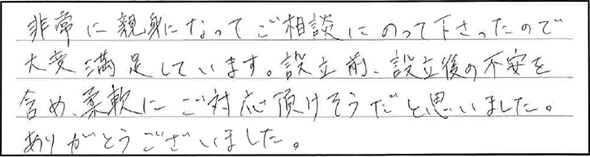 非常に親身になってご相談にのって下さったので
大変満足しています。設立前、設立後の不安を
含め、柔軟にご対応頂けそうだと思いました。
ありがとうございました。